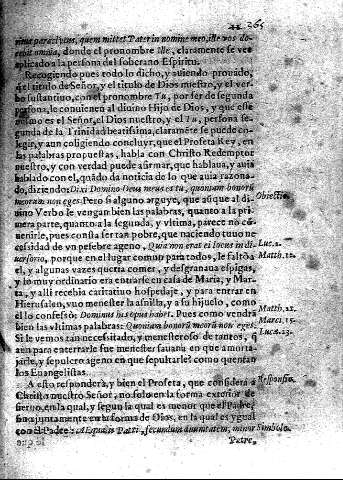 265
ritus paraclytus, quem mittet Pater in nomine meo, ille vos do-
cebit omnia, donde el pronombre ille, claramente se vee
aplicado a la persona del soberano Espiritu.
Recogiendo pues todo lo dicho, y auiendo prouado,
q̃ el titulo de Señor, y el titulo de Dios nuestro, y el ver-
bo sustantiuo, con el pronombre Tu, por ser de segunda
persona, le conuienen al diuino Hijo de Dios, y que este
mismo es el Señor, el Dios nuestro, y el Tu, persona se-
gunda de la Trinidad beatissima, claramẽte se puede co-
legir, y aun coligiendo concluyr, que el Profeta Rey, en
las palabras propuestas, habla con Christo Redemptor
nuestro, y con verdad puede afirmar, que hablaua, y auia
hablado con el, quãdo da noticia de lo que auia razona-
do, diziendo: Dixi Domino Deus meus es tu, quoniam bonorũ
meorum non eges. Pero si alguno arguye, que aũque al di-
uino Verbo le vengan bien las palabras, quanto a la pri-
mera parte, quanto a la segunda, y vltima, parece no cõ-
uenirle, pues cõsta ser tan pobre, que naciendo tuuo ne-
cessidad de vn pesebre ageno, Quia non erat ei locus in di-
uersorio, porque en el lugar comun para todos, le faltò a
el, y algunas vezes queria comer, y desgranaua espigas,
y lo muy ordinario era entrarse en casa de Maria, y Mar-
ta, y alli recebia caritatiuo hospedaje, y para entrar en
Hierusalen, vuo menester la asnilla, y a su hijuelo, como
el lo confessò: Dominus his opus habet. Pues como vendrà
bien las vltimas palabras: Quoniam bonorũ meorũ non eges.
Si le vemos tan necessitado, y menesteroso de tantos, q̃
aun para enterrarle fue menester sauana en que amorta-
jarle, y sepulcro ageno en que sepultarle? como quentan
los Euangelistas.
A esto responderà, y bien el Profeta, que considera à
Christo nuestro Señor, no solo en la forma exterior de
sieruo, en la qual, y segun la qual es menor que el Padre,
sino juntamente en la forma de Dios, en la qual es ygual
con el Padre: Aequalis Patri, secundum diuinitatem, minor
Patre.
Obiectio.
Luc.2.
Matth.12.
Matth.21.
Marci.15.
Lucæ.23.
Responsio.
Simbolo.